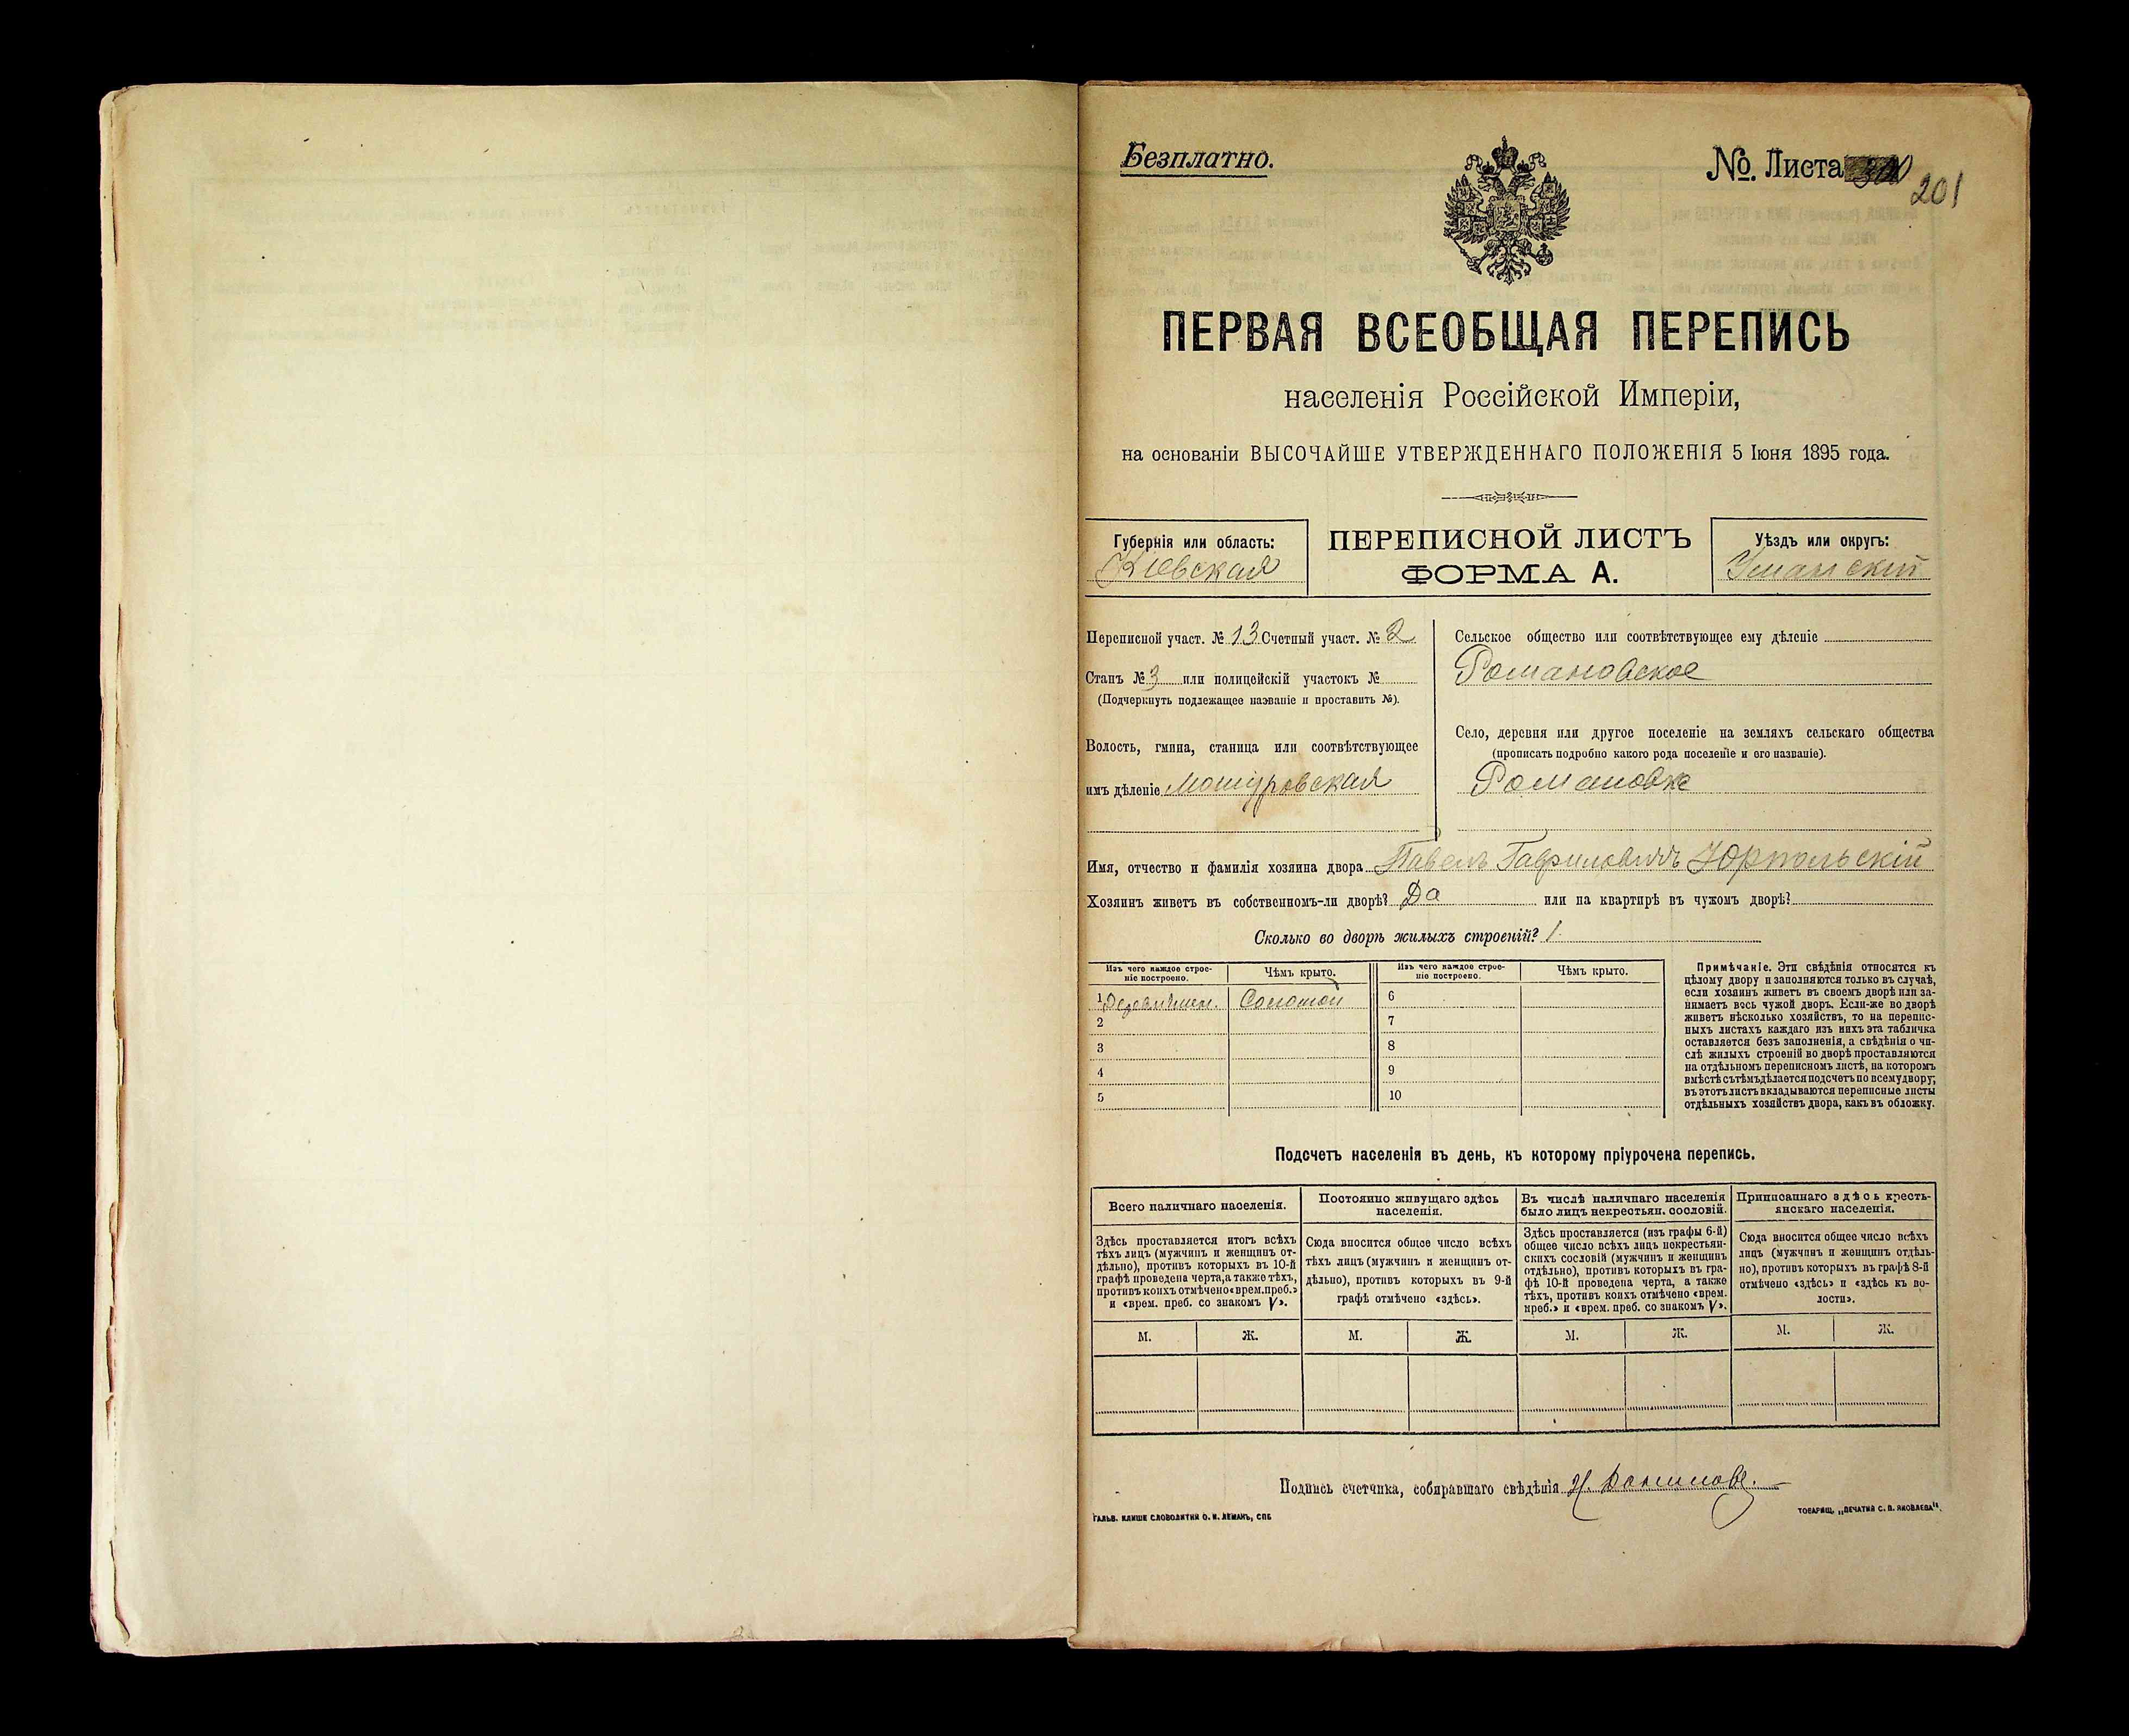 Безплатно.
№. Листа
201
ПЕРВАЯ ВСЕОБЩАЯ ПЕРЕПИСЬ
населенія Россійской Имперіи,
на основаніи ВЫСОЧАЙШЕ УТВЕРЖДЕННАГО ПОЛОЖЕНІЯ 5 Іюня 1895 года.
Губернія или область:
Кіевская
ПЕРЕПИСНОЙ ЛИСТЪ
ФОРМА А.
Уѣздъ или округъ:
Уманскій
Переписной участ. № 13 Счетный участ. № 2
Станъ № 3 или полицейскій участокъ №
(Подчеркнуть подлежащее названіе и проставить №).
Волость, гмина, станица или соотвѣтствующее
имъ дѣленіе Машуровская
Сельское общество или соотвѣтствующее ему дѣленіе
Романовское
Село, деревня или другое поселеніе на земляхъ сельскаго общества
(прописать подробно какого рода поселеніе и его названіе).
Романовка
Имя, отчество и фамилія хозяина двора Павелъ Гавриловичъ Юрпольскій
Хозяинъ живетъ въ собственномъ-ли дворѣ? Да или на квартирѣ въ чужомъ дворѣ?
Сколько во дворѣ жилыхъ строеній? 1
Изъ чего каждое строе-
ніе построено.
Чѣмъ крыто.
1 Деревянное. Соломой
2
3
4
5
Изъ чего каждое строе-
ніе построено.
Чѣмъ крыто.
6
7
8
9
10
Примѣчаніе. Эти свѣдѣнія относятся къ
цѣлому двору и заполняются только въ случаѣ,
если хозяинъ живетъ въ своемъ дворѣ или за-
нимаетъ весь чужой дворъ. Если-же во дворѣ
живетъ нѣсколько хозяйствъ, то на перепис-
ныхъ листахъ каждаго изъ нихъ эта табличка
оставляется безъ заполненія, а свѣдѣнія о чи-
слѣ жилыхъ строеній во дворѣ проставляются
на отдѣльномъ переписномъ листѣ, на которомъ
вмѣстѣ съ тѣмъ дѣлается подсчетъ по всему двору;
въ этотъ листъ вкладываются переписные листы
отдѣльныхъ хозяйствъ двора, какъ въ обложку.
Подсчетъ населенія въ день, къ которому пріурочена перепись.
Всего наличнаго населенія.
Здѣсь проставляется итогъ всѣхъ
тѣхъ лицъ (мужчинъ и женщинъ от-
дѣльно), противъ которыхъ въ 10-й
графѣ проведена черта, а также тѣхъ,
противъ коихъ отмѣчено «врем. преб.»
и «врем. преб. со знакомъ V».
М. Ж.
Постоянно живущаго здѣсь
населенія.
Сюда вносится общее число всѣхъ
тѣхъ лицъ (мужчинъ и женщинъ от-
дѣльно), противъ которыхъ въ 9-й
графѣ отмѣчено «здѣсь».
М. Ж.
Въ числѣ наличнаго населенія
было лицъ некрестьян. сословій.
Здѣсь проставляется (изъ графы 6-й)
общее число всѣхъ лицъ некрестьян-
скихъ сословій (мужчинъ и женщинъ
отдѣльно), противъ которыхъ въ гра-
фѣ 10-й проведена черта, а также
тѣхъ, противъ коихъ отмѣчено «врем.
преб.» и «врем. преб. со знакомъ V».
М. Ж.
Приписаннаго здѣсь кресть-
янскаго населенія.
Сюда вносится общее число всѣхъ
лицъ (мужчинъ и женщинъ отдѣль-
но), противъ которыхъ въ графѣ 8-й
отмѣчено «здѣсь» и «здѣсь къ во-
лости».
М. Ж.
Подпись счетчика, собиравшаго свѣдѣнія
ГАЛЬВ. КЛИШЕ СЛОВОЛИТНИ О. И. ЛЕМАНЪ, СПБ
ТОВАРИЩ. „ПЕЧАТНЯ С. П. ЯКОВЛЕВА".